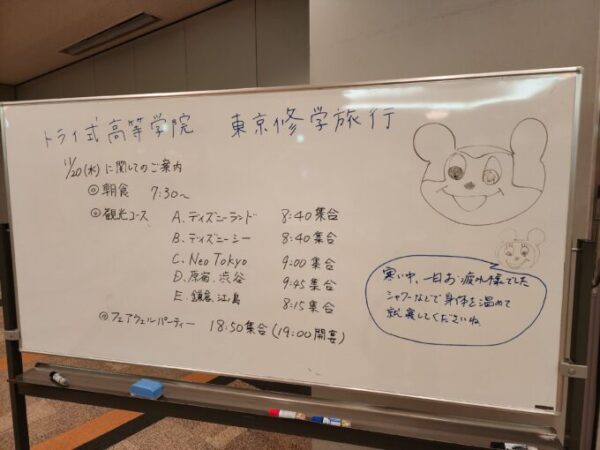 トライ式高等学院 東京修学旅行
11/20(水)に関してのご案内
◎朝食 7:30〜
◎観光コース A.ディズニーランド 8:40集合
B.ディズニーシー 8:40集合
C.Neo Tokyo 9:00集合
D.原宿、渋谷 9:45集合
E.鎌倉、江島 8:15集合
◎フェアウェルパーティー 18:50集合(19:00開宴)
寒い中、一日お疲れ様でした
シャワーなどで身体を温めて
就寝してくださいね